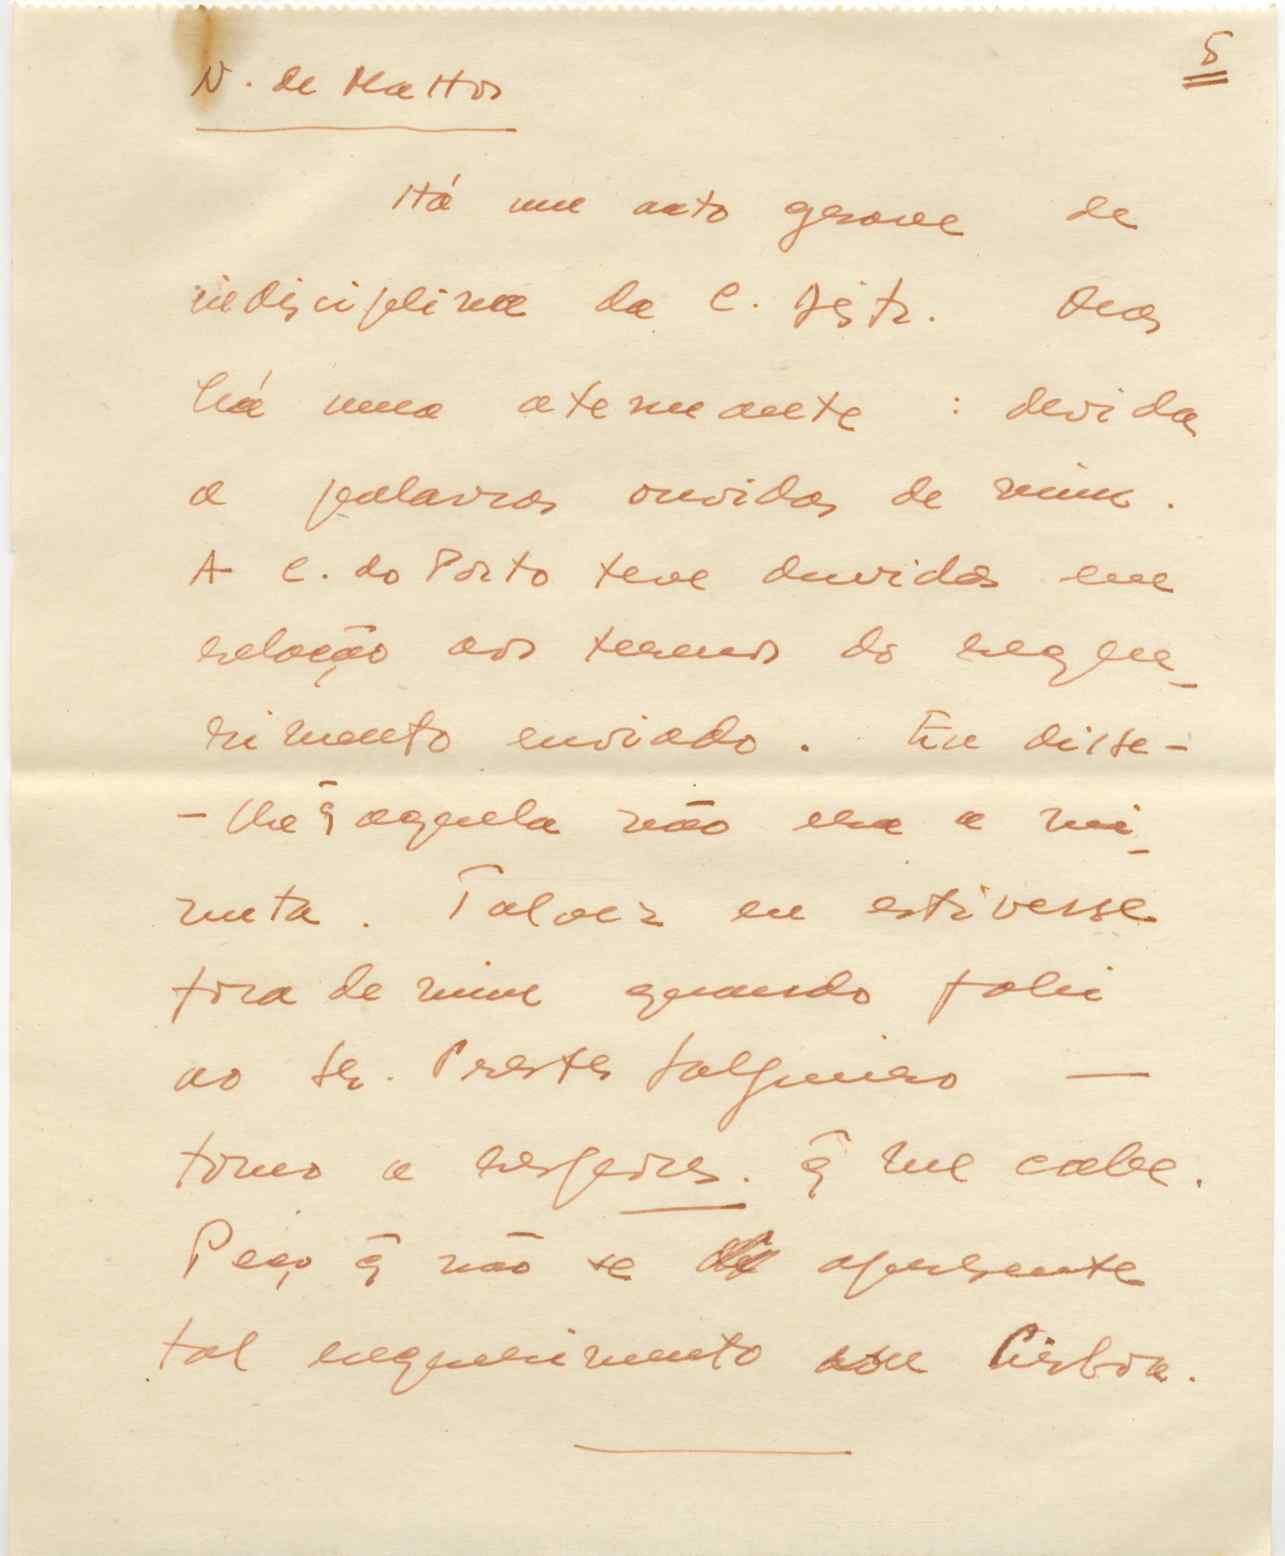 N. de Mattos
5
Há um acto grave de
indisciplina da C. Distr. Mas
há uma atenuante : devida
a palavras ouvidas de mim.
A C. do Porto teve duvidas em
relação aos termos do reque_
rimento enviado. Eu disse-
- lhe q̃ aquela não era a mi_
nuta. Talvez eu estivesse
fora de mim quando falei
ao Sr. Prestes Salgueiro —
tomo a respons. q̃ me cabe.
Peço q̃ não se apresente
tal requerimento em Lisboa.